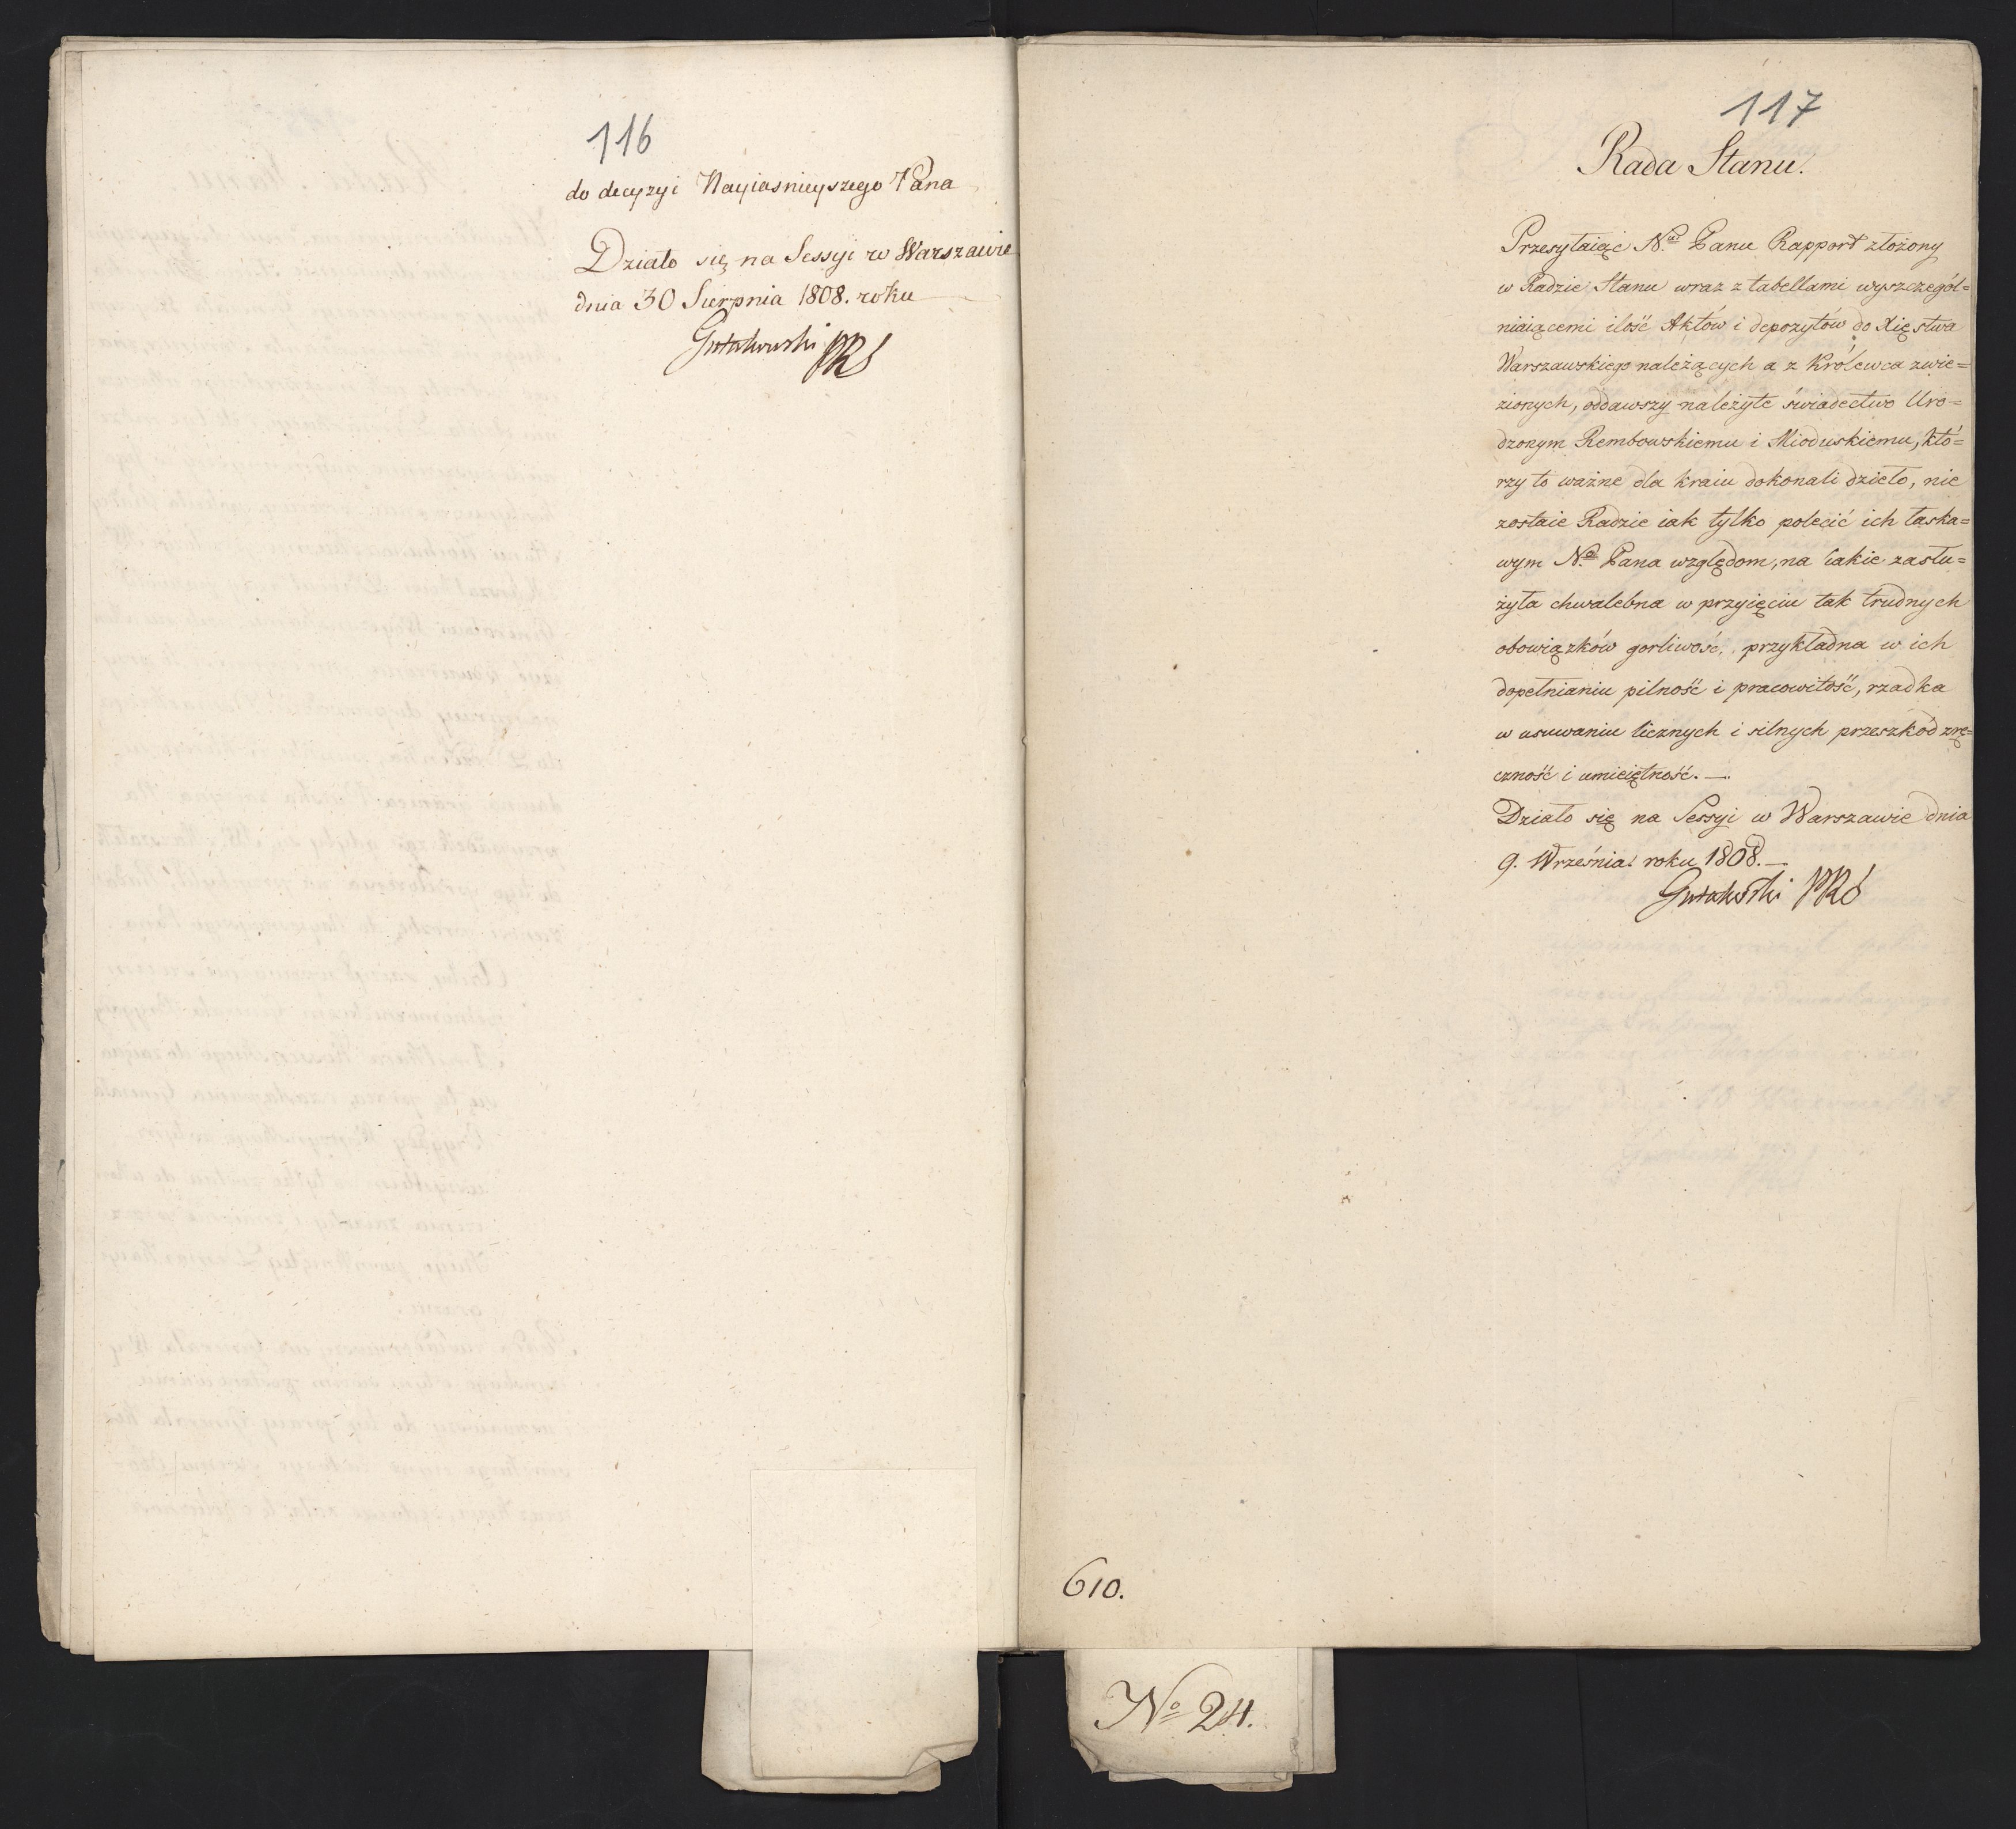 116
do decyzyi Nayiasnieyszego Pana
Działo się na Sessyi w Warszawie
dnia 30 Sierpnia 1808. roku
Gutakowski PRS
117
Rada Stanu.
Przesyłaiąc N.mu Panu Rapport złożony
w Radzie Stanu wraz z tabellami wyszczegól=
niaiącemi ilość Aktów i depozytów do Xięstwa
Warszawskiego należących a z Królewca zwie=
zionych, oddawszy należyte świadectwo Uro=
dzonym Rembowskiemu i Mioduskiemu, któ=
rzy to ważne dla kraiu dokonali dzieło, nie
zostaie Radzie iak tylko polecić ich łaska=
wym N.o Pana względom, na iakie zasłu=
żyła chwalebna w przyięciu tak trudnych
obowiązków gorliwość, przykładna w ich
dopełnianiu pilność i pracowitość, rzadka
w usuwaniu licznych i silnych przeszkód zrę=
czność i umieiętność. —
Działo się na Sessyi w Warszawie dnia
9. Września roku 1808. —
Gutakowski PRS
610.
No 24.